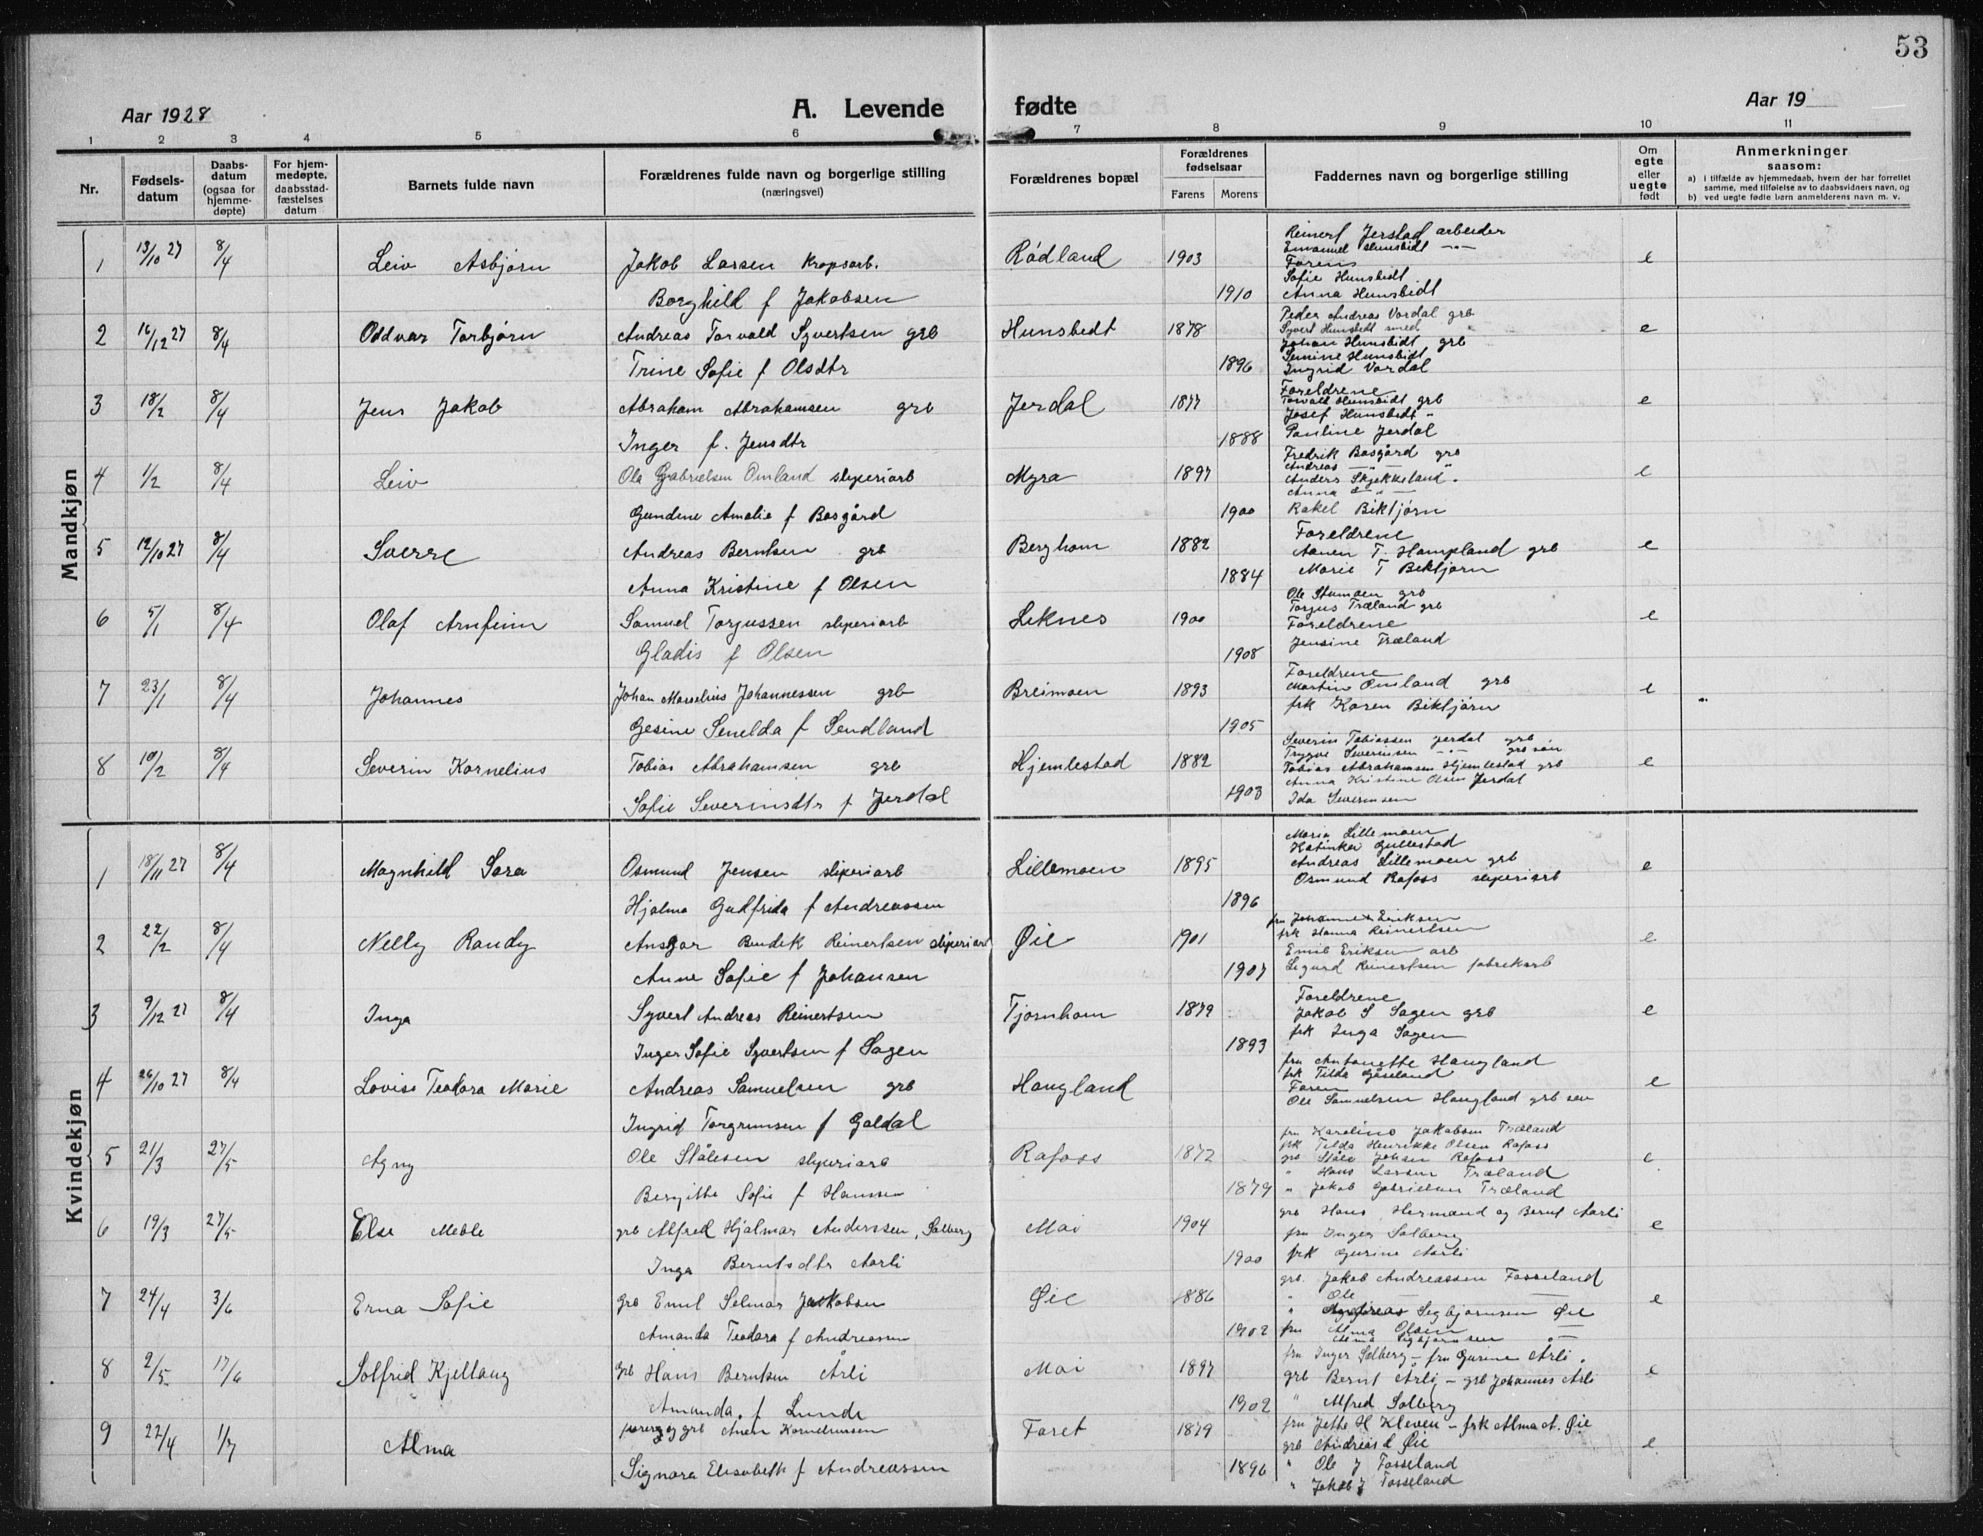 53
Aar 1928
A. Levende fødte
Aar 19
1 2 3 4 5 6 7 8 9 10 11
Nr.
Fødsels-datum
Daabs-datum (ogsaa for hjemme-døpte)
For hjem-medøpte, daabsstad-fæstelses datum
Barnets fulde navn
Forældrenes fulde navn og borgerlige stilling (næringsvei)
Forældrenes bopæl
Forældrenes fødselsaar
Farens Morens
Faddernes navn og borgerlige stilling
Om egte eller uegte født
Anmerkninger saasom:
a) i tilfælde av hjemmedaab, hvem der har forrettet samme, med tilføielse av to daabsvidners navn, og
b) ved uegte fødte barn anmelderens navn m. v.
Mandkjøn
1 13/10 27 8/4 Leiv Asbjørn Jakob Larsen kropsarb. Rødland 1903 e
Borghild f Jakobsen 1910
Reinert Jerstad arbeider
Emanuel Hunsbidt -"-
Farens
Sofie Hunsbidt
Anna Hunsbidt
2 16/12 27 8/4 Oddvar Torbjørn Andreas Torvald Syvertsen grb Hunsbedt 1878 e
Trine Sofie f Olsdtr 1896
Peder Andreas Vordal grb
Syvert Hunsbedt smed
Johan Hunsbidt grb
Semine Hunsbidt
Ingrid Vordal
3 18/2 8/4 Jens Jakob Abraham Abrahamsen grb Jerdal 1877 e
Inger f. Jensdtr 1888
Foreldrene
Torvald Hunsbidt grb
Josef Hunsbidt "
Pauline Jerdal
4 1/2 8/4 Leiv Ola Gabrielsen Omland sliperiarb Myra 1897 e
Gundene Amalie f Bosgård 1900
Fredrik Bosgård grb
Andreas -"-
Anders Skjekkeland "
Anna -"-
Rakel Biktjørn
5 12/10 27 8/4 Sverre Andreas Berntsen grb Berghom 1882 e
Anna Kristine f Olsen 1884
Foreldrene
Aanen T. Hompland grb
Marie T Bektjørn
6 5/1 8/4 Olaf Arnfinn Samuel Torgussen sliperiarb Leknes 1900 e
Gladis f Olsen 1908
Ole Stamoen grb
Torgus Træland grb
Foreldrene
Jensine Træland
7 23/1 8/4 Johannes Johan Marselius Johannessen grb Breimoen 1893 e
Gesine Senelda f Sendland 1905
Foreldrene
Martin Omland grb
frk Karen Biktjørn
8 10/2 8/4 Severin Kornelius Tobias Abrahamsen grb Hjemlestad 1882 e
Sofie Severinsdtr f Jerdal 1903
Severin Tobiassen Jerdal grb
Trygve Severinsen -"- grb søn
Tobias Abrahamsen Hjemlestad grb
Anna Kristine Olsen Jerdal
Ida Severinsen
Kvindekjøn
1 18/11 27 8/4 Magnhild Sara Osmund Jensen sliperiarb Lillemoen 1895 e
Hjalma Gudfrida f Andreassen 1896
Maria Lillemoen
Katinka Gullestad
Andreas Lillemoen grb
Osmund Rafoss sliperiarb
2 22/2 8/4 Nelly Randy Ansgar Bendik Reinertsen sliperiarb Øie 1901 e
Anne Sofie f Johansen 1907
fru Johanne Eriksen
frk Hanna Reinertsen
Emil Eriksen arb
Sigurd Reinertsen fabrekarb
3 9/12 27 8/4 Inga Syvert Andreas Reinertsen Tjørnhom 1879 e
Inger Sofie Syvertsen f Sagen 1893
Foreldrene
Jakob S Sagen grb
frk Inga Sagen
4 26/10 27 8/4 Lovise Teodora Marie Andreas Samuelsen grb Haugland e
Ingrid Torgrimsen f Galdal
fru Antonette Haugland
frk Tilda Gåseland
Faren
Ole Samuelsen Haugland grb søn
5 21/3 27/5 Agny Ole Stålesen sliperiarb Rafoss 1872 e
Bergithe Sofie f Hanssen 1879
fru Karoline Jakobsen Træland
frk Tilda Henrikke Olsen Rafoss
grb Ståle Johan Rafoss
" Hans Larsen Træland
" Jakob Gabrielsen Træland
6 19/3 27/5 Else Meble grb Alfred Hjalmar Anderssen, Solberg Moi 1904 e
Inga Berntsdtr Aarli 1900
grb Hans, Hermand og Bernt Aarli
fru Inger Solberg
frk Gurine Aarli
7 24/4 3/6 Erna Sofie Grb Emil Selmar Jakobsen Øie 1886 e
Amanda Teodora f Andreassen 1902
grb. Jakob Andreassen Fosseland
" Ole — —
" Andreas Segbjørnsen Øie
fru Alma Olsen
Alma Segbjørnsen -"-
8 2/5 17/6 Solfrid Kjellaug Grb Hans Berntsen Årli Moi 1897 e
Amanda f Lunde 1902
fru Inger Solberg – fru Gurine Årli
grb Bernt Årli – grb Johannes Årli
" Alfred Solberg
9 22/4 1/7 Alma grb Anen Kornelinusen Foret 1879 e
Signora Elisabeth f Andreassen 1896
fru Jette H Kleven – frk Alma A. Øie
grb Andreas L Øie
" Ole J Fosseland
" Jakob J Fosseland